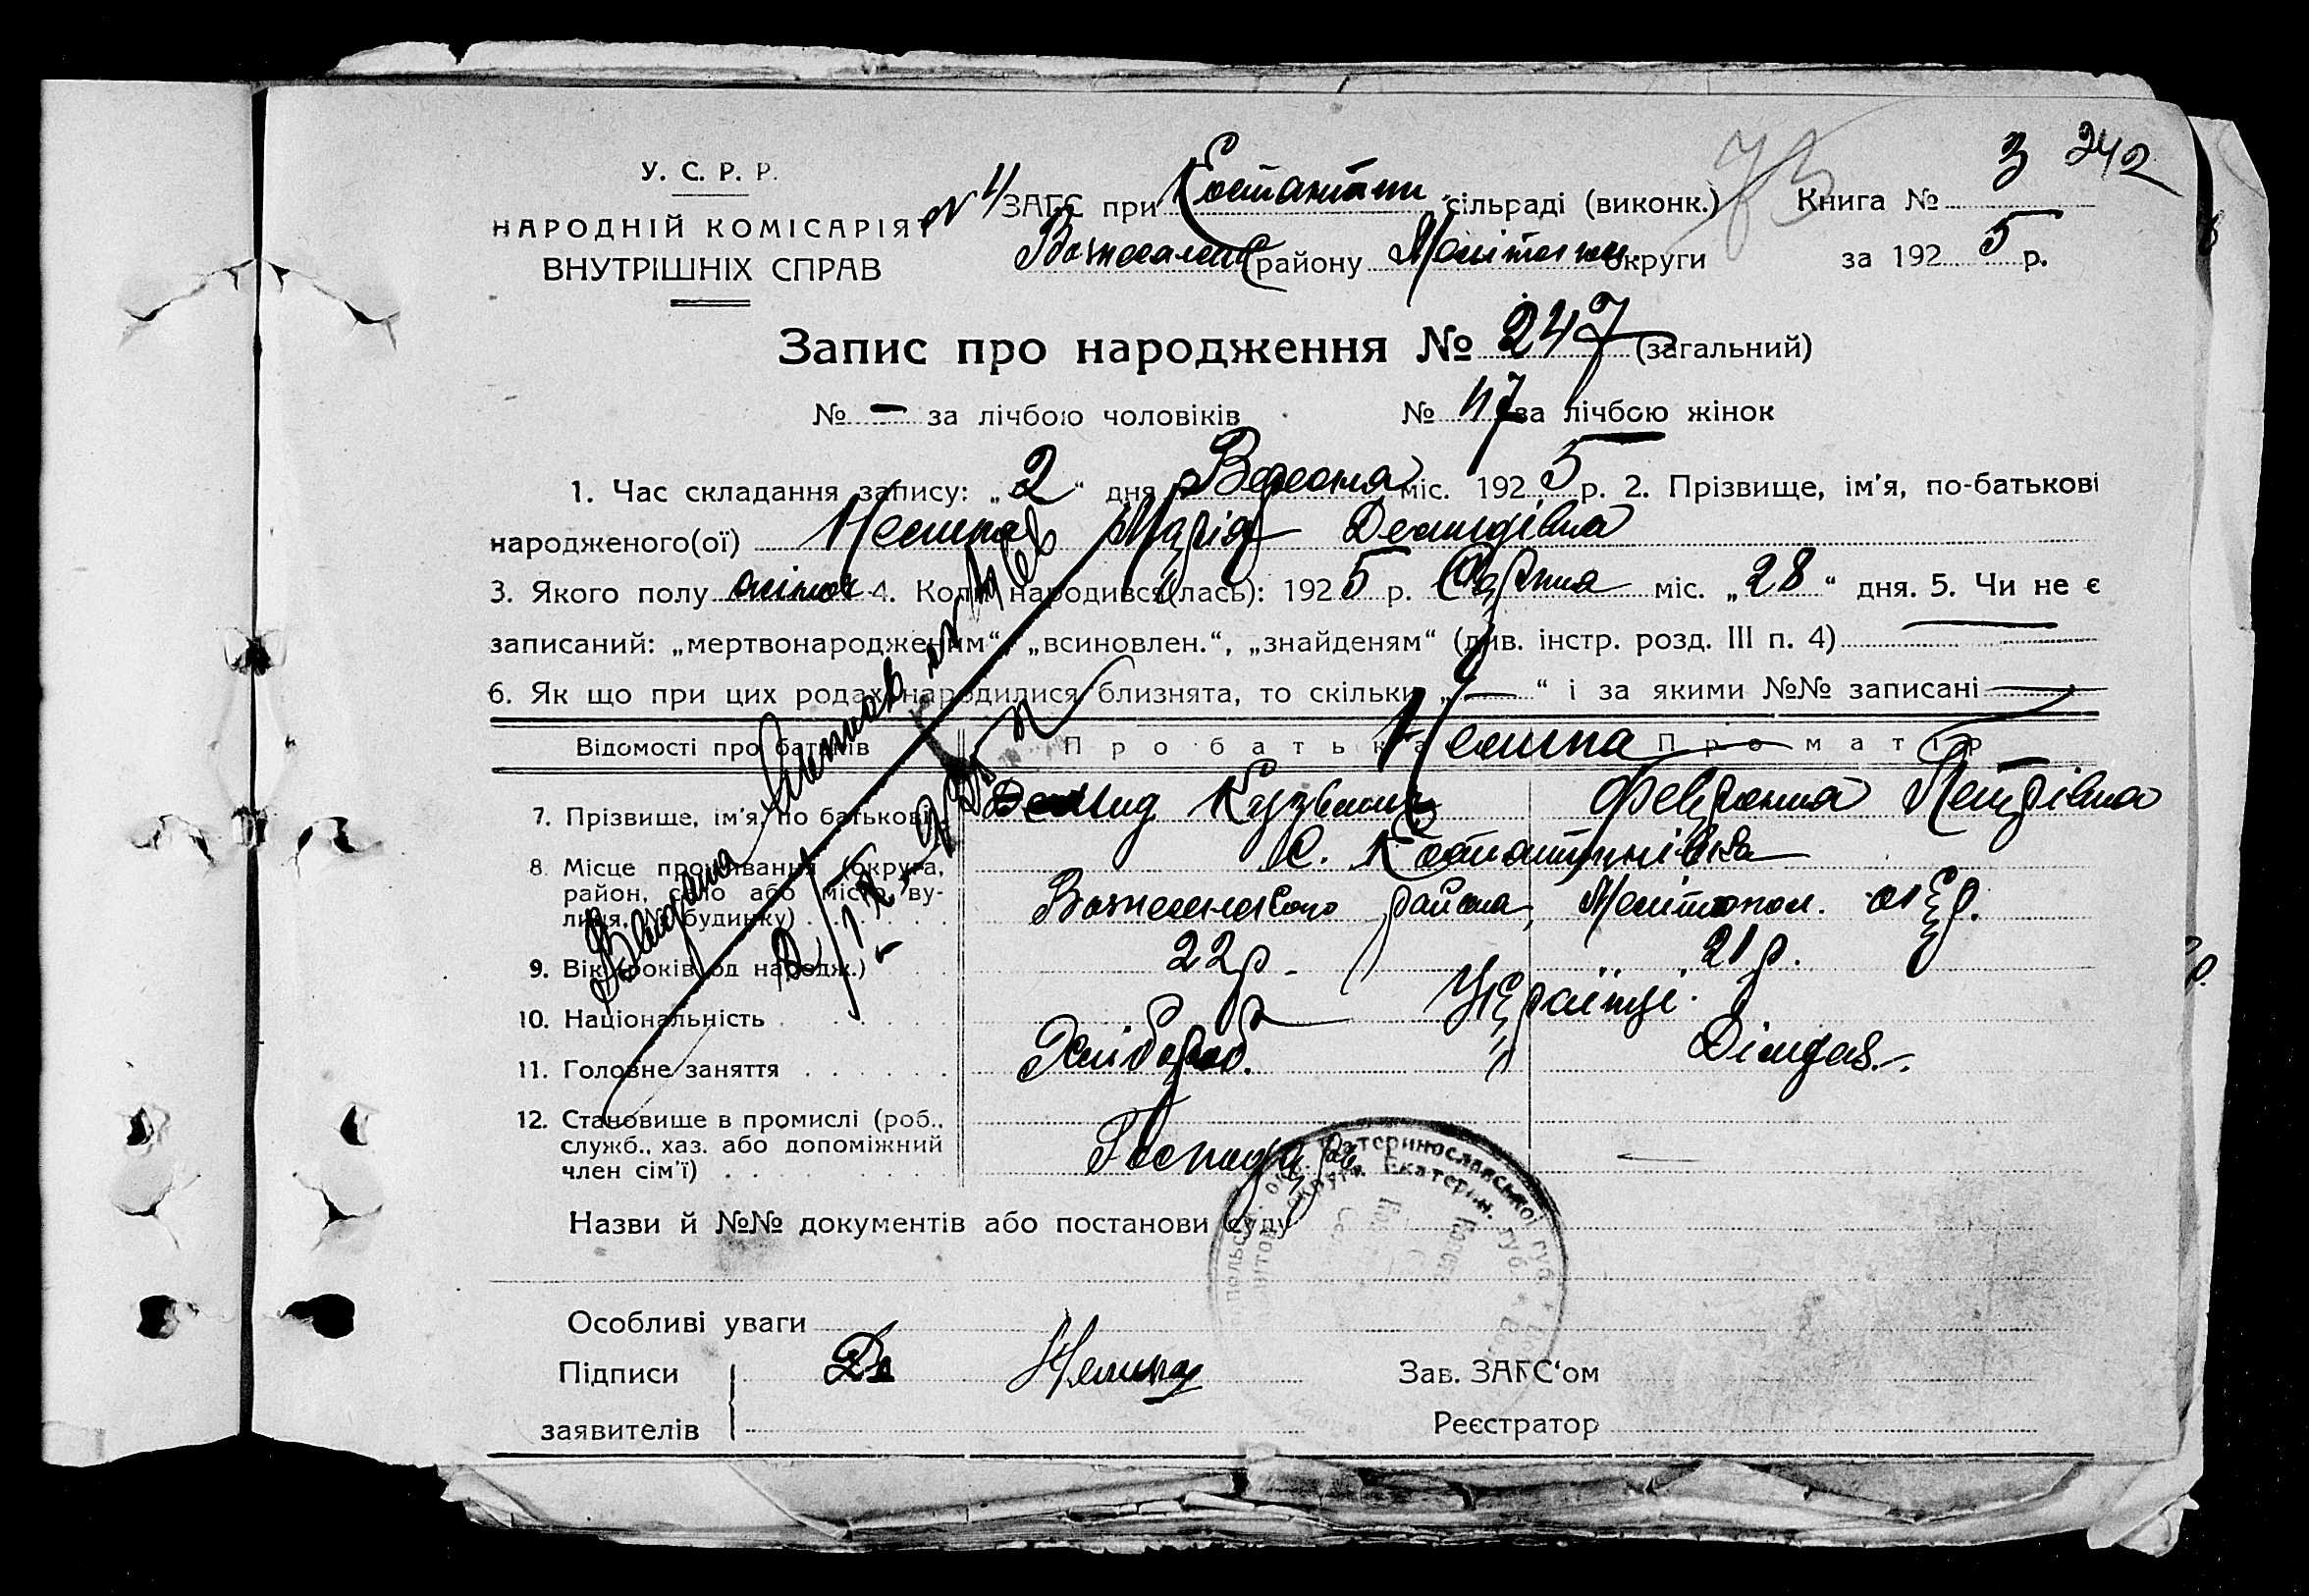 3 242
73
У. С. Р. Р.
НАРОДНІЙ КОМІСАРІЯТ
ВНУТРІШНІХ СПРАВ
№ 1/ЗАГС при Костантин сільраді (виконк.) Книга №
району Мелітопол. округи за 1925 р.
Запис про народження № 247 (загальний)
№ — за лічбою чоловіків № 117 за лічбою жінок
1. Час складання запису: „2“ дня Вересня міс. 1925 р. 2. Прізвище, ім'я, по-батькові
народженого(ої) Нелипа Марія Демидівна
3. Якого полу жіноч 4. Коли народився(лась): 1925 р. Серпня міс. „28“ дня. 5. Чи не є
записаний: „мертвонародженим“, „всиновлен.“, „знайденям“ (див. інстр. розд. III п. 4) —
6. Як що при цих родах народилися близнята, то скільки „—“ і за якими №№ записані —
Відомості про батьків Про батька Нелипа Про матір
7. Прізвище, ім'я, по батькові Демид Федронія Петрівна
8. Місце проживання (округа,
район, село або місто, ву-
лиця, № будинку) с. Костантинівка
Вознесенсього района, Мелітопол. окр.
9. Вік (років од народж.) 22 р. 21 р.
10. Національність Українці.
11. Головне заняття Хлібороб. „
12. Становище в промислі (роб.,
служб., хаз. або допоміжний
член сім'ї) Господар —
Видано
2/IX-925 р
Назви й №№ документів або постанови суду
Особливі уваги
Підписи
заявителів Нелипа
Зав. ЗАГС'ом
Реєстратор
Катеринославської губ.
округи Екатерин. губ.